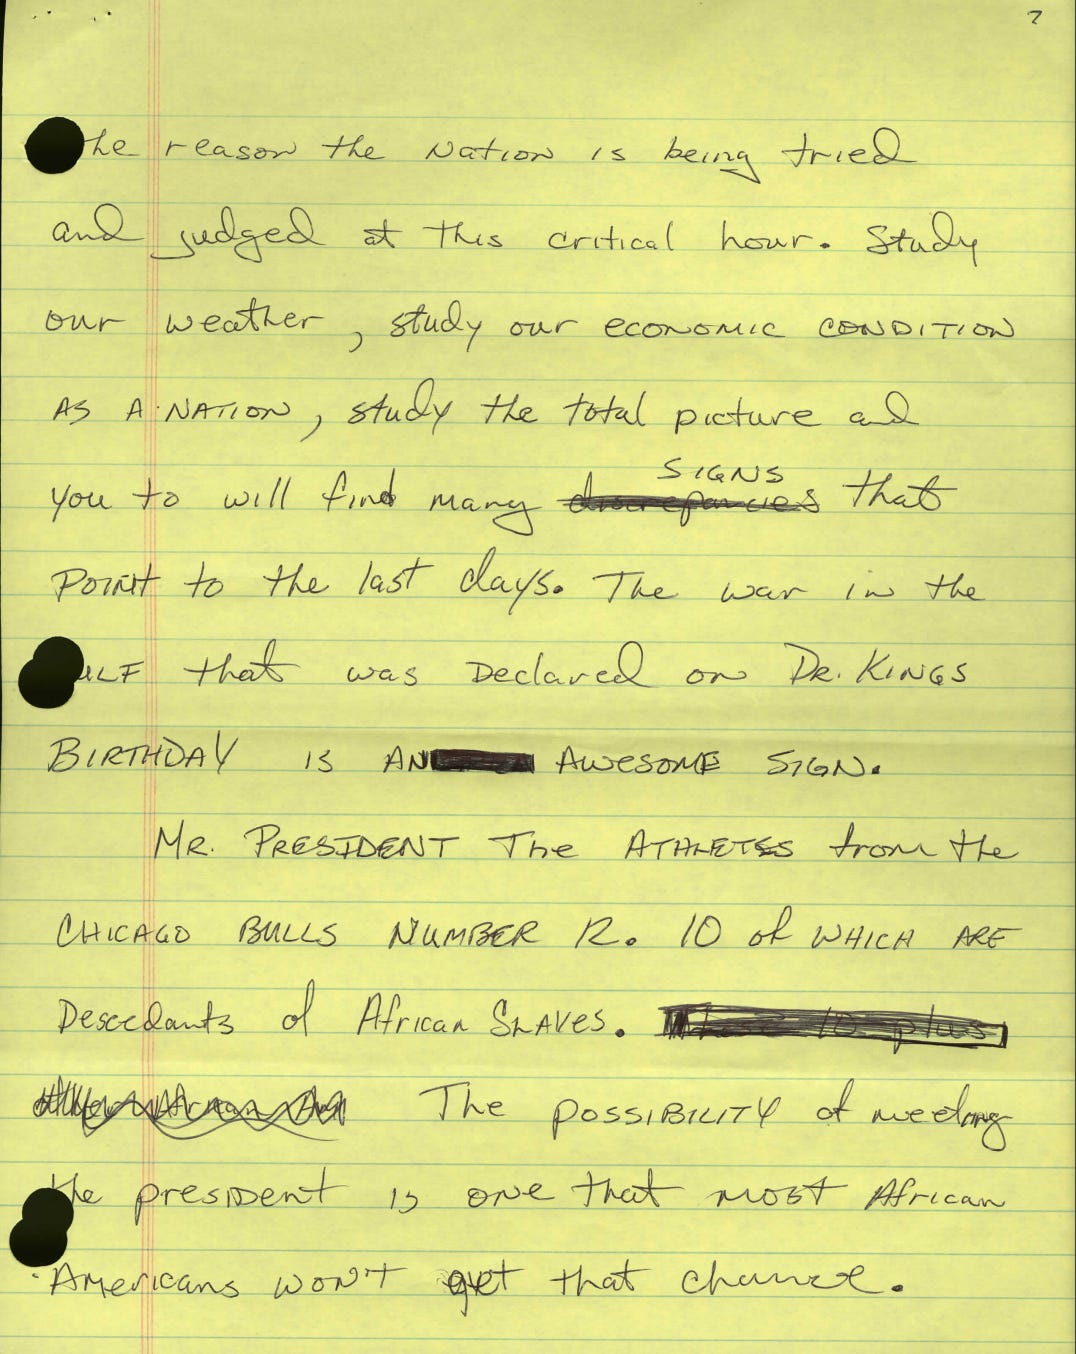 7
he reason the Nation is being tried
and judged at this critical hour. Study
our weather, study our economic condition
AS A NATION, study the total picture and
SIGNS
you to will find many discrepancies that
point to the last days. The war in the
ULF that was Declared on DR. KINGS
BIRTHDAY IS AN AWESOME SIGN.
MR. PRESIDENT The ATHLETES from the
CHICAGO BULLS NUMBER 12. 10 of WHICH ARE
Descedants of African SLAVES. These 10 plus
The POSSIBILITY of meeting
the president is one that most African
Americans won't get that chance.